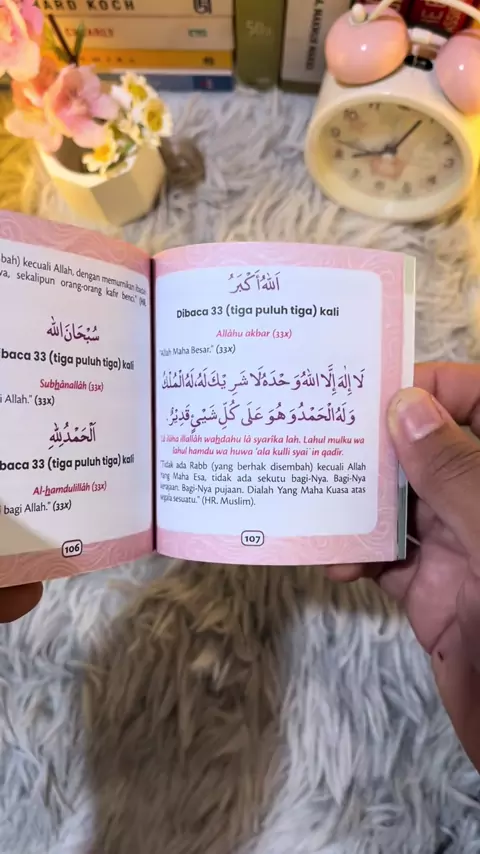 ARD KOCH
bah) kecuali Allah, dengan memurnikan ibadah
va, sekalipun orang-orang kafir benci." (HR.
سُبْحَانَ اللّٰه
baca 33 (tiga puluh tiga) kali
Subhânallâh (33x)
i Allah." (33x)
اَلْحَمْدُ لِلّٰهِ
baca 33 (tiga puluh tiga) kali
Al-hamdulillâh (33x)
bagi Allah." (33x)
106
اَللّٰهُ أَكْبَرُ
Dibaca 33 (tiga puluh tiga) kali
Allâhu akbar (33x)
"Allah Maha Besar." (33x)
لَا إِلٰهَ إِلَّا اللّٰهُ وَحْدَهُ لَا شَرِيْكَ لَهُ، لَهُ الْمُلْكُ
وَلَهُ الْحَمْدُ وَهُوَ عَلَى كُلِّ شَيْئٍ قَدِيْرٌ.
Lâ ilâha illallâh wahdahu lâ syarîka lah. Lahul mulku wa
lahul hamdu wa huwa 'ala kulli syai`in qadîr.
"Tidak ada Rabb (yang berhak disembah) kecuali Allah
Yang Maha Esa, tidak ada sekutu bagi-Nya. Bagi-Nya
kerajaan. Bagi-Nya pujaan. Dialah Yang Maha Kuasa atas
segala sesuatu." (HR. Muslim).
107